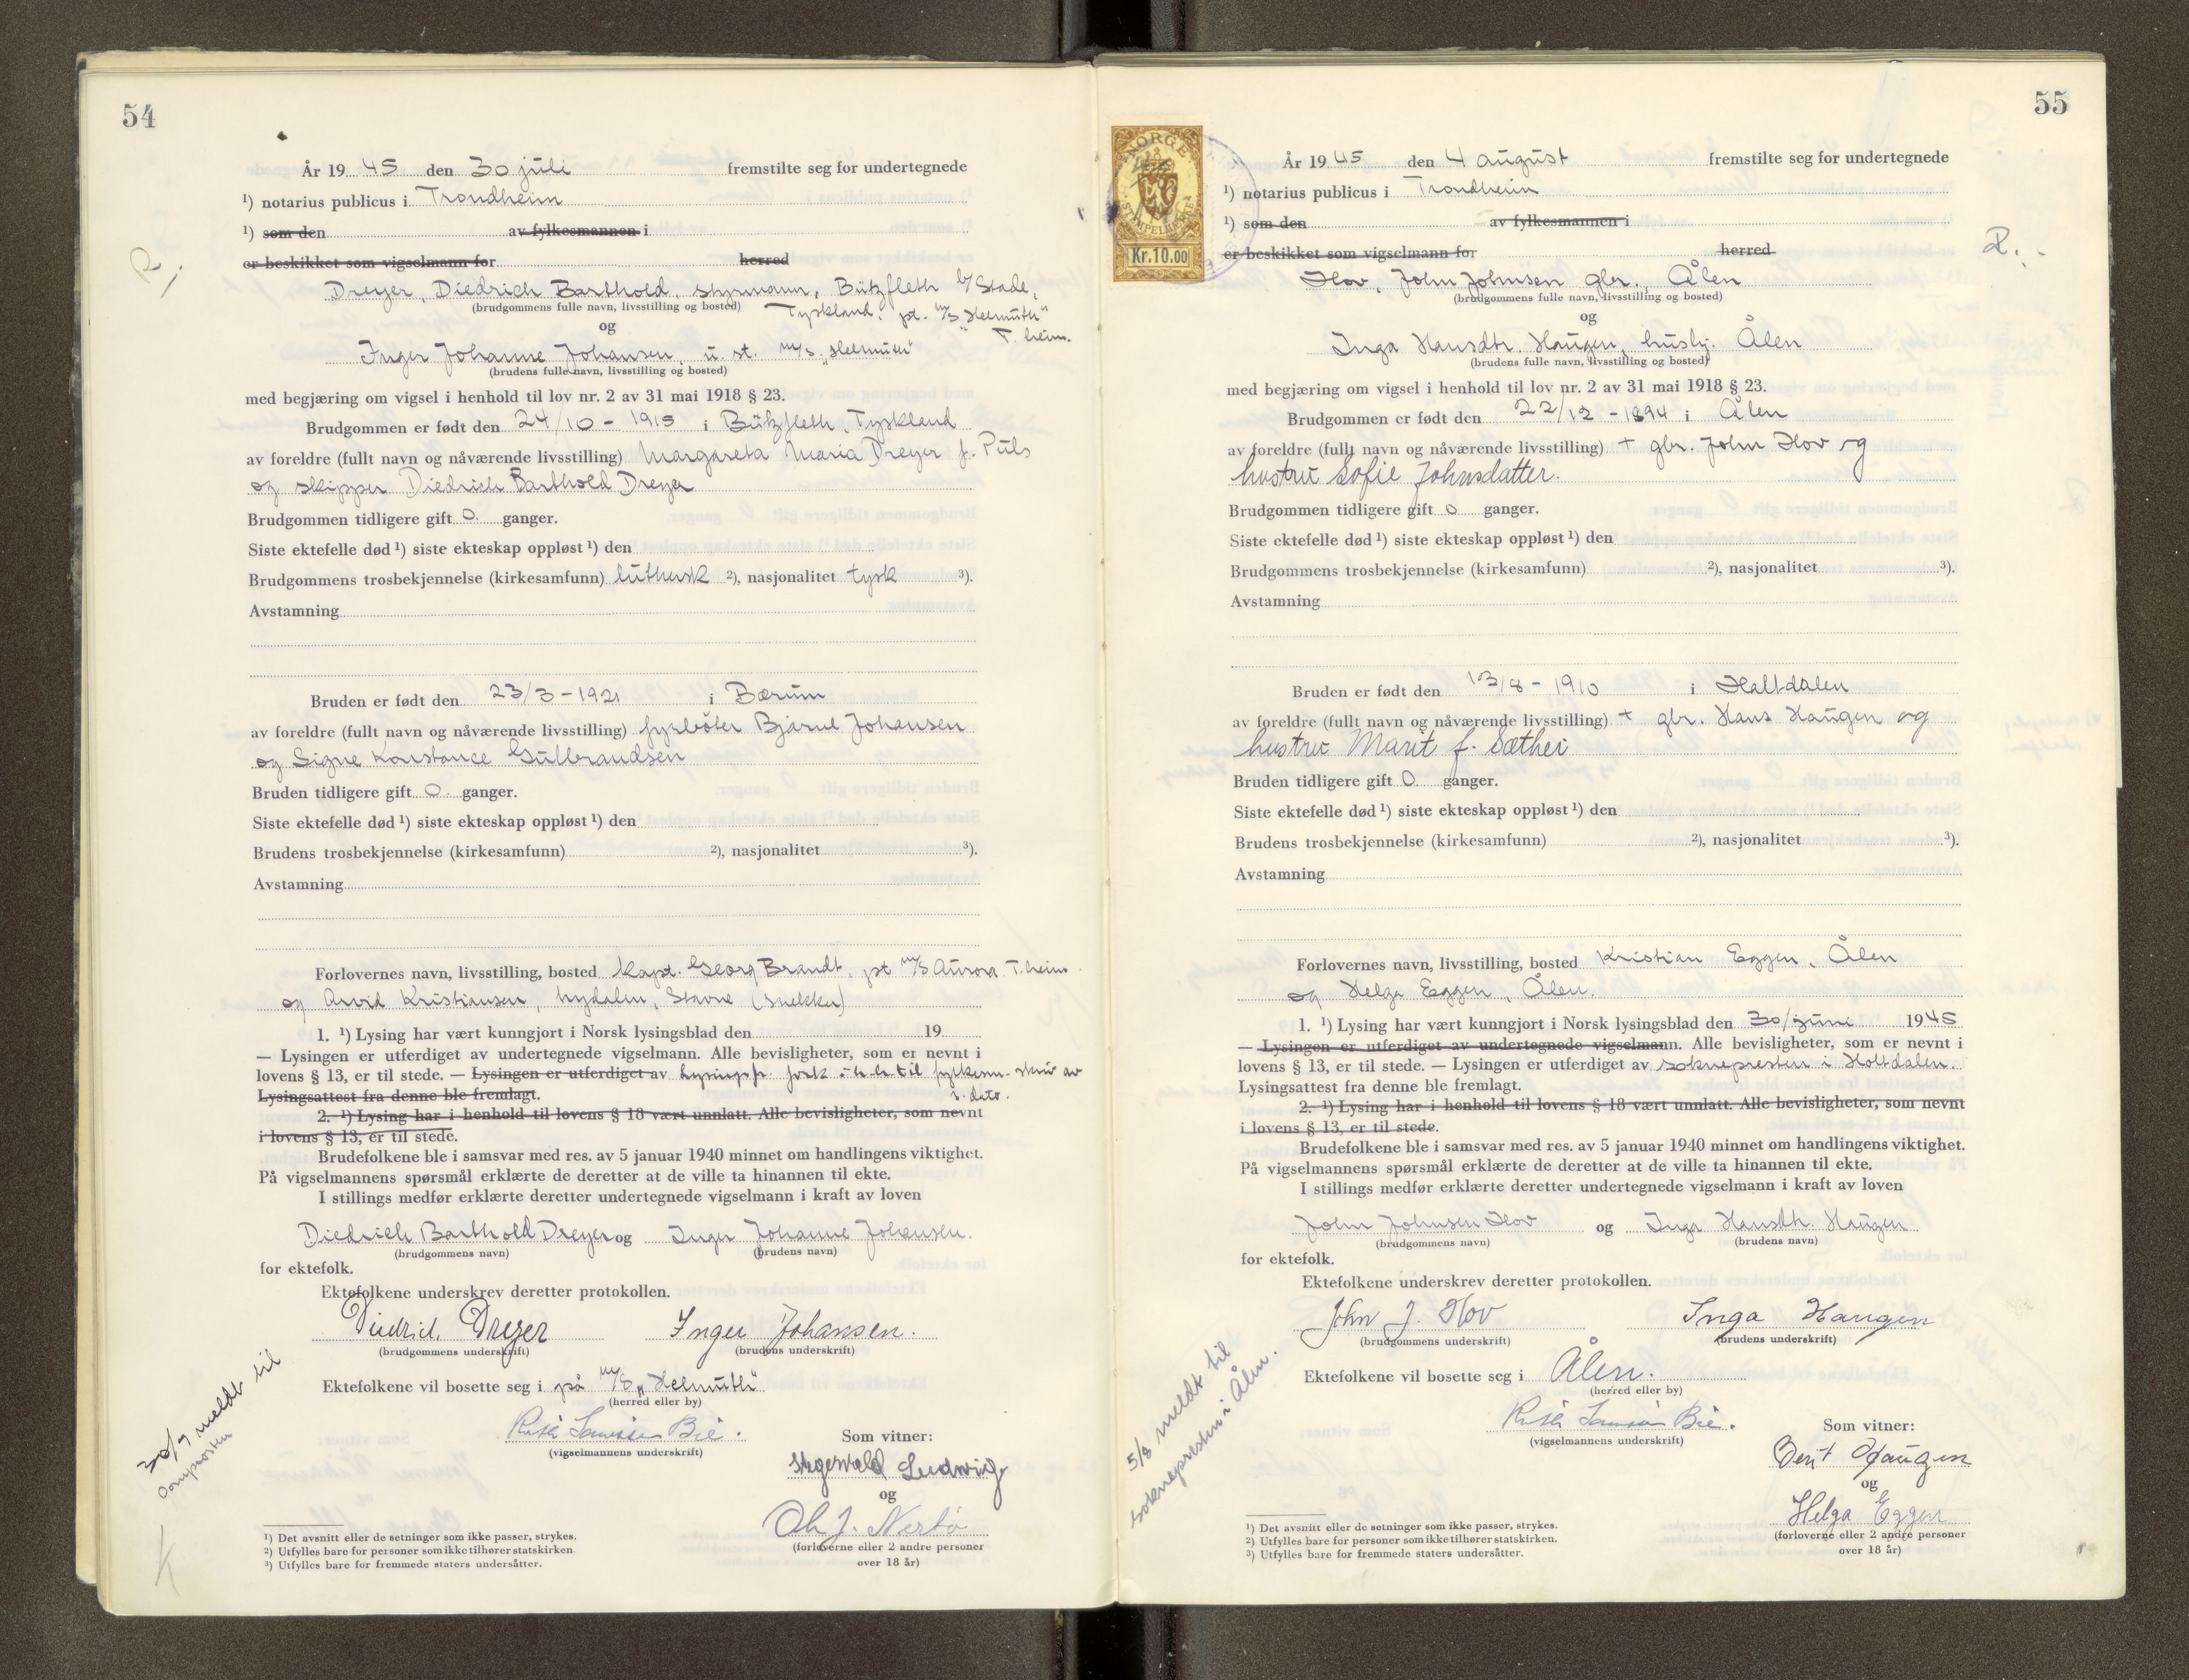 54
År 1945 den 30 juli fremstilte seg for undertegnede
¹) notarius publicus i Trondheim
¹) som den av fylkesmannen i
er beskikket som vigselmann for herred
R,
Dreyer, Diedrich Barthold, styrmann, Bützfleth b/Stade,
(brudgommens fulle navn, livsstilling og bosted) Tyskland, pt. m/s „Helmuth"
og T.heim.
Inger Johanne Johansen, u. st. m/s. „Helmuth"
(brudens fulle navn, livsstilling og bosted)
med begjæring om vigsel i henhold til lov nr. 2 av 31 mai 1918 § 23.
Brudgommen er født den 24/10 - 1915 i Bützfleth, Tyskland
av foreldre (fullt navn og nåværende livsstilling) Margareta Maria Dreyer f. Puls
og skipper Diedrich Barthold Dreyer
Brudgommen tidligere gift 0 ganger.
Siste ektefelle død ¹) siste ekteskap oppløst ¹) den
Brudgommens trosbekjennelse (kirkesamfunn) luthersk ²), nasjonalitet tysk ³).
Avstamning
Bruden er født den 23/3 - 1921 i Bærum
av foreldre (fullt navn og nåværende livsstilling) fyrbøter Bjarne Johansen
og Signe Konstance Gulbrandsen
Bruden tidligere gift 0 ganger.
Siste ektefelle død ¹) siste ekteskap oppløst ¹) den
Brudens trosbekjennelse (kirkesamfunn) ²), nasjonalitet ³).
Avstamning
Forlovernes navn, livsstilling, bosted Kapt. Georg Brandt, pt m/s Aurora T.heim.
og Arvid Kristiansen, Nydalen, Stavne (snekker)
1. ¹) Lysing har vært kunngjort i Norsk lysingsblad den 19
— Lysingen er utferdiget av undertegnede vigselmann. Alle bevisligheter, som er nevnt i
lovens § 13, er til stede. — Lysingen er utferdiget av Lysingsfr. til fylkesm. skriv av
Lysingsattest fra denne ble fremlagt. s. dato.
2. ¹) Lysing har i henhold til lovens § 18 vært unnlatt. Alle bevisligheter, som nevnt
i lovens § 13, er til stede.
Brudefolkene ble i samsvar med res. av 5 januar 1940 minnet om handlingens viktighet.
På vigselmannens spørsmål erklærte de deretter at de ville ta hinannen til ekte.
I stillings medfør erklærte deretter undertegnede vigselmann i kraft av loven
Diedrich Barthold Dreyer og Inger Johanne Johansen.
(brudgommens navn) (brudens navn)
for ektefolk.
Ektefolkene underskrev deretter protokollen.
Diedrich Dreyer Inger Johansen.
(brudgommens underskrift) (brudens underskrift)
Ektefolkene vil bosette seg i på m/s „Helmuth"
(herred eller by)
Bie.
(vigselmannens underskrift)
Som vitner:
Stegerwald Ludwig
og
Ole J. Nerbø
(forloverne eller 2 andre personer
over 18 år)
30/7 meldt til
Domprosten
K
¹) Det avsnitt eller de setninger som ikke passer, strykes.
²) Utfylles bare for personer som ikke tilhører statskirken.
³) Utfylles bare for fremmede staters undersåtter.
55
NORGE
STEMPELMERKE
Kr.10.00
År 1945 den 4 august fremstilte seg for undertegnede
¹) notarius publicus i Trondheim
¹) som den av fylkesmannen i
er beskikket som vigselmann for herred
R.
Hov, John Johnsen gbr. Ålen
(brudgommens fulle navn, livsstilling og bosted)
og
Inga Hansdtr. Haugen, hushj. Ålen
(brudens fulle navn, livsstilling og bosted)
med begjæring om vigsel i henhold til lov nr. 2 av 31 mai 1918 § 23.
Brudgommen er født den 22/12 - 1894 i Ålen
av foreldre (fullt navn og nåværende livsstilling) + gbr. John Hov og
hustru Sofie Johnsdatter.
Brudgommen tidligere gift 0 ganger.
Siste ektefelle død ¹) siste ekteskap oppløst ¹) den
Brudgommens trosbekjennelse (kirkesamfunn) ²), nasjonalitet ³).
Avstamning
Bruden er født den 13/8 - 1910 i Haltdalen
av foreldre (fullt navn og nåværende livsstilling) + gbr. Hans Haugen og
hustru Marit f. Sæther
Bruden tidligere gift 0 ganger.
Siste ektefelle død ¹) siste ekteskap oppløst ¹) den
Brudens trosbekjennelse (kirkesamfunn) ²), nasjonalitet ³).
Avstamning
Forlovernes navn, livsstilling, bosted Kristian Eggen, Ålen
og Helga Eggen, Ålen.
1. ¹) Lysing har vært kunngjort i Norsk lysingsblad den 30/juni 1945
— Lysingen er utferdiget av undertegnede vigselmann. Alle bevisligheter, som er nevnt i
lovens § 13, er til stede. — Lysingen er utferdiget av soknepresten i Holtdalen.
Lysingsattest fra denne ble fremlagt.
2. ¹) Lysing har i henhold til lovens § 18 vært unnlatt. Alle bevisligheter, som nevnt
i lovens § 13, er til stede.
Brudefolkene ble i samsvar med res. av 5 januar 1940 minnet om handlingens viktighet.
På vigselmannens spørsmål erklærte de deretter at de ville ta hinannen til ekte.
I stillings medfør erklærte deretter undertegnede vigselmann i kraft av loven
John Johnsen Hov og Inga Hansdtr. Haugen
(brudgommens navn) (brudens navn)
for ektefolk.
Ektefolkene underskrev deretter protokollen.
John J. Hov Inga Haugen
(brudgommens underskrift) (brudens underskrift)
Ektefolkene vil bosette seg i Ålen.
(herred eller by)
Bie.
(vigselmannens underskrift)
Som vitner:
Berit Haugen
og
Helga Eggen
(forloverne eller 2 andre personer
over 18 år)
5/8 meldt til
soknepresten i Ålen.
¹) Det avsnitt eller de setninger som ikke passer, strykes.
²) Utfylles bare for personer som ikke tilhører statskirken.
³) Utfylles bare for fremmede staters undersåtter.